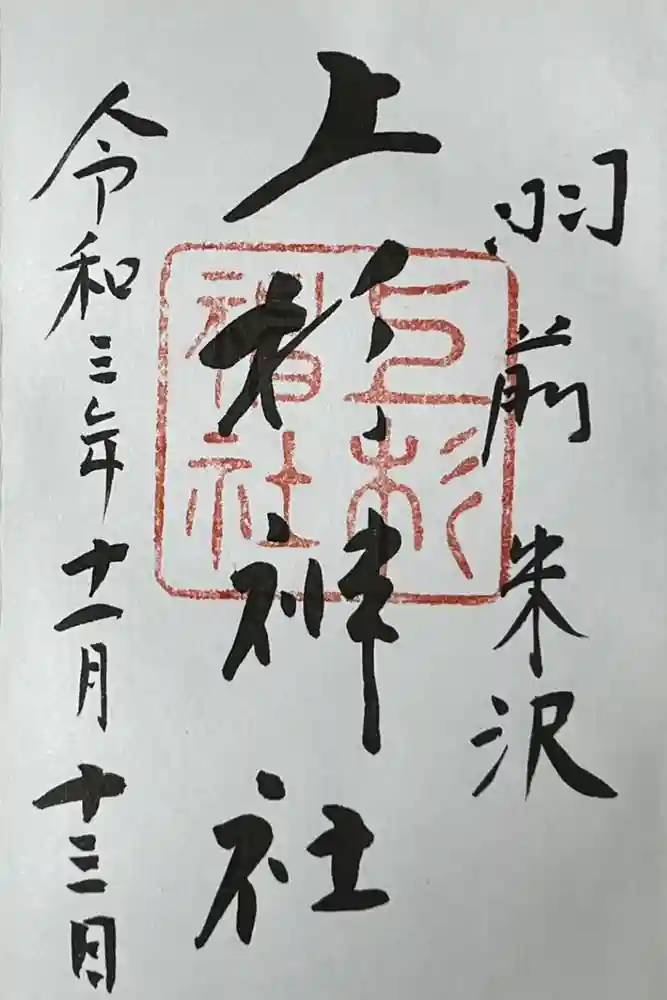 羽前米沢
上杉神社
上杉
神社
令和三年十一月十三日